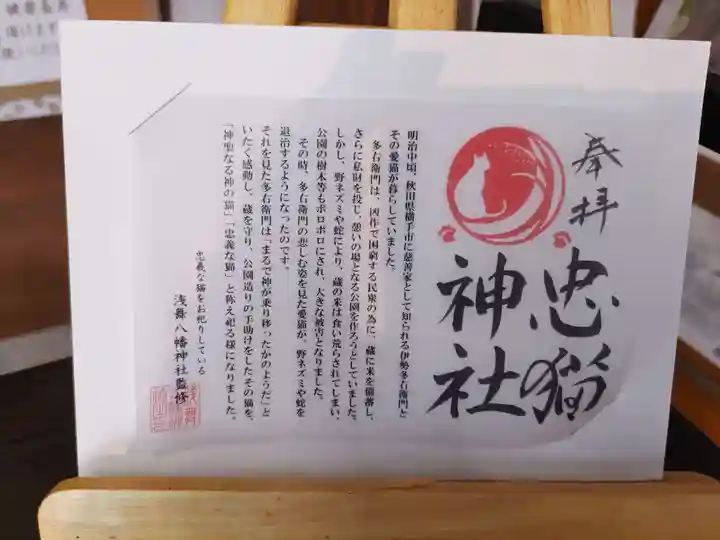 奉拝
忠猫
神社
明治中頃、秋田県横手市に慈善家として知られる伊勢多右衛門と
その愛猫が暮らしていました。
多右衛門は、凶作で困窮する民衆の為に、蔵に米を備蓄し、
さらに私財を投じ、憩いの場となる公園を作ろうとしていました。
しかし、野ネズミや蛇により、蔵の米は食い荒らされてしまい、
公園の樹木等もボロボロにされ、大きな被害となりました。
その時、多右衛門の悲しむ姿を見た愛猫が、野ネズミや蛇を
退治するようになったのです。
それを見た多右衛門は「まるで神が乗り移ったかのようだ」と
いたく感動し、蔵を守り、公園造りの手助けをしたその猫を、
「神聖なる神の猫」「忠義な猫」と称え祀る様になりました。
忠義な猫をお祀りしている
浅舞八幡神社監修